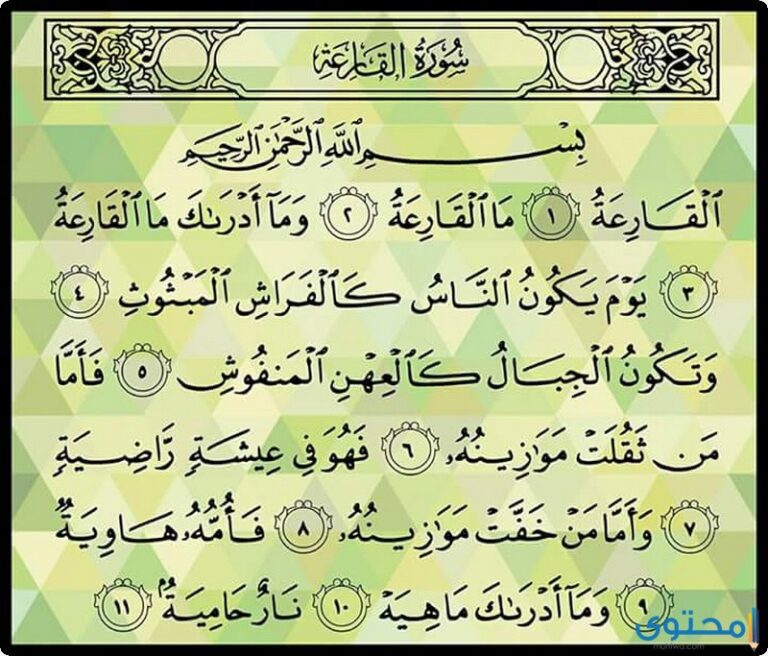 سُورَةُ القَارِعَةِ
بِسْمِ ٱللَّهِ ٱلرَّحْمَٰنِ ٱلرَّحِيمِ
ٱلْقَارِعَةُ ١ مَا ٱلْقَارِعَةُ ٢ وَمَآ أَدْرَىٰكَ مَا ٱلْقَارِعَةُ
٣ يَوْمَ يَكُونُ ٱلنَّاسُ كَٱلْفَرَاشِ ٱلْمَبْثُوثِ ٤
وَتَكُونُ ٱلْجِبَالُ كَٱلْعِهْنِ ٱلْمَنفُوشِ ٥ فَأَمَّا
مَن ثَقُلَتْ مَوَٰزِينُهُۥ ٦ فَهُوَ فِى عِيشَةٍ رَّاضِيَةٍ
٧ وَأَمَّا مَنْ خَفَّتْ مَوَٰزِينُهُۥ ٨ فَأُمُّهُۥ هَاوِيَةٌ
٩ وَمَآ أَدْرَىٰكَ مَا هِيَهْ ١٠ نَارٌ حَامِيَةٌۢ ١١
محتوى
muhtwa.com